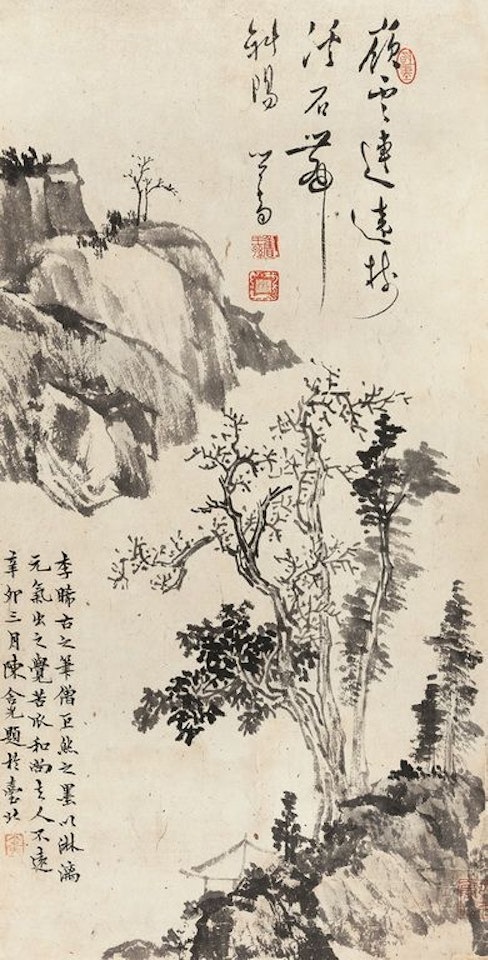 嶺雲連遠樹
溪石帶
斜陽 心畬
李晞古之筆僧巨然之墨以淋漓
元氣出之覺苦瓜和尚去人不遠
辛卯三月陳含光題於臺北